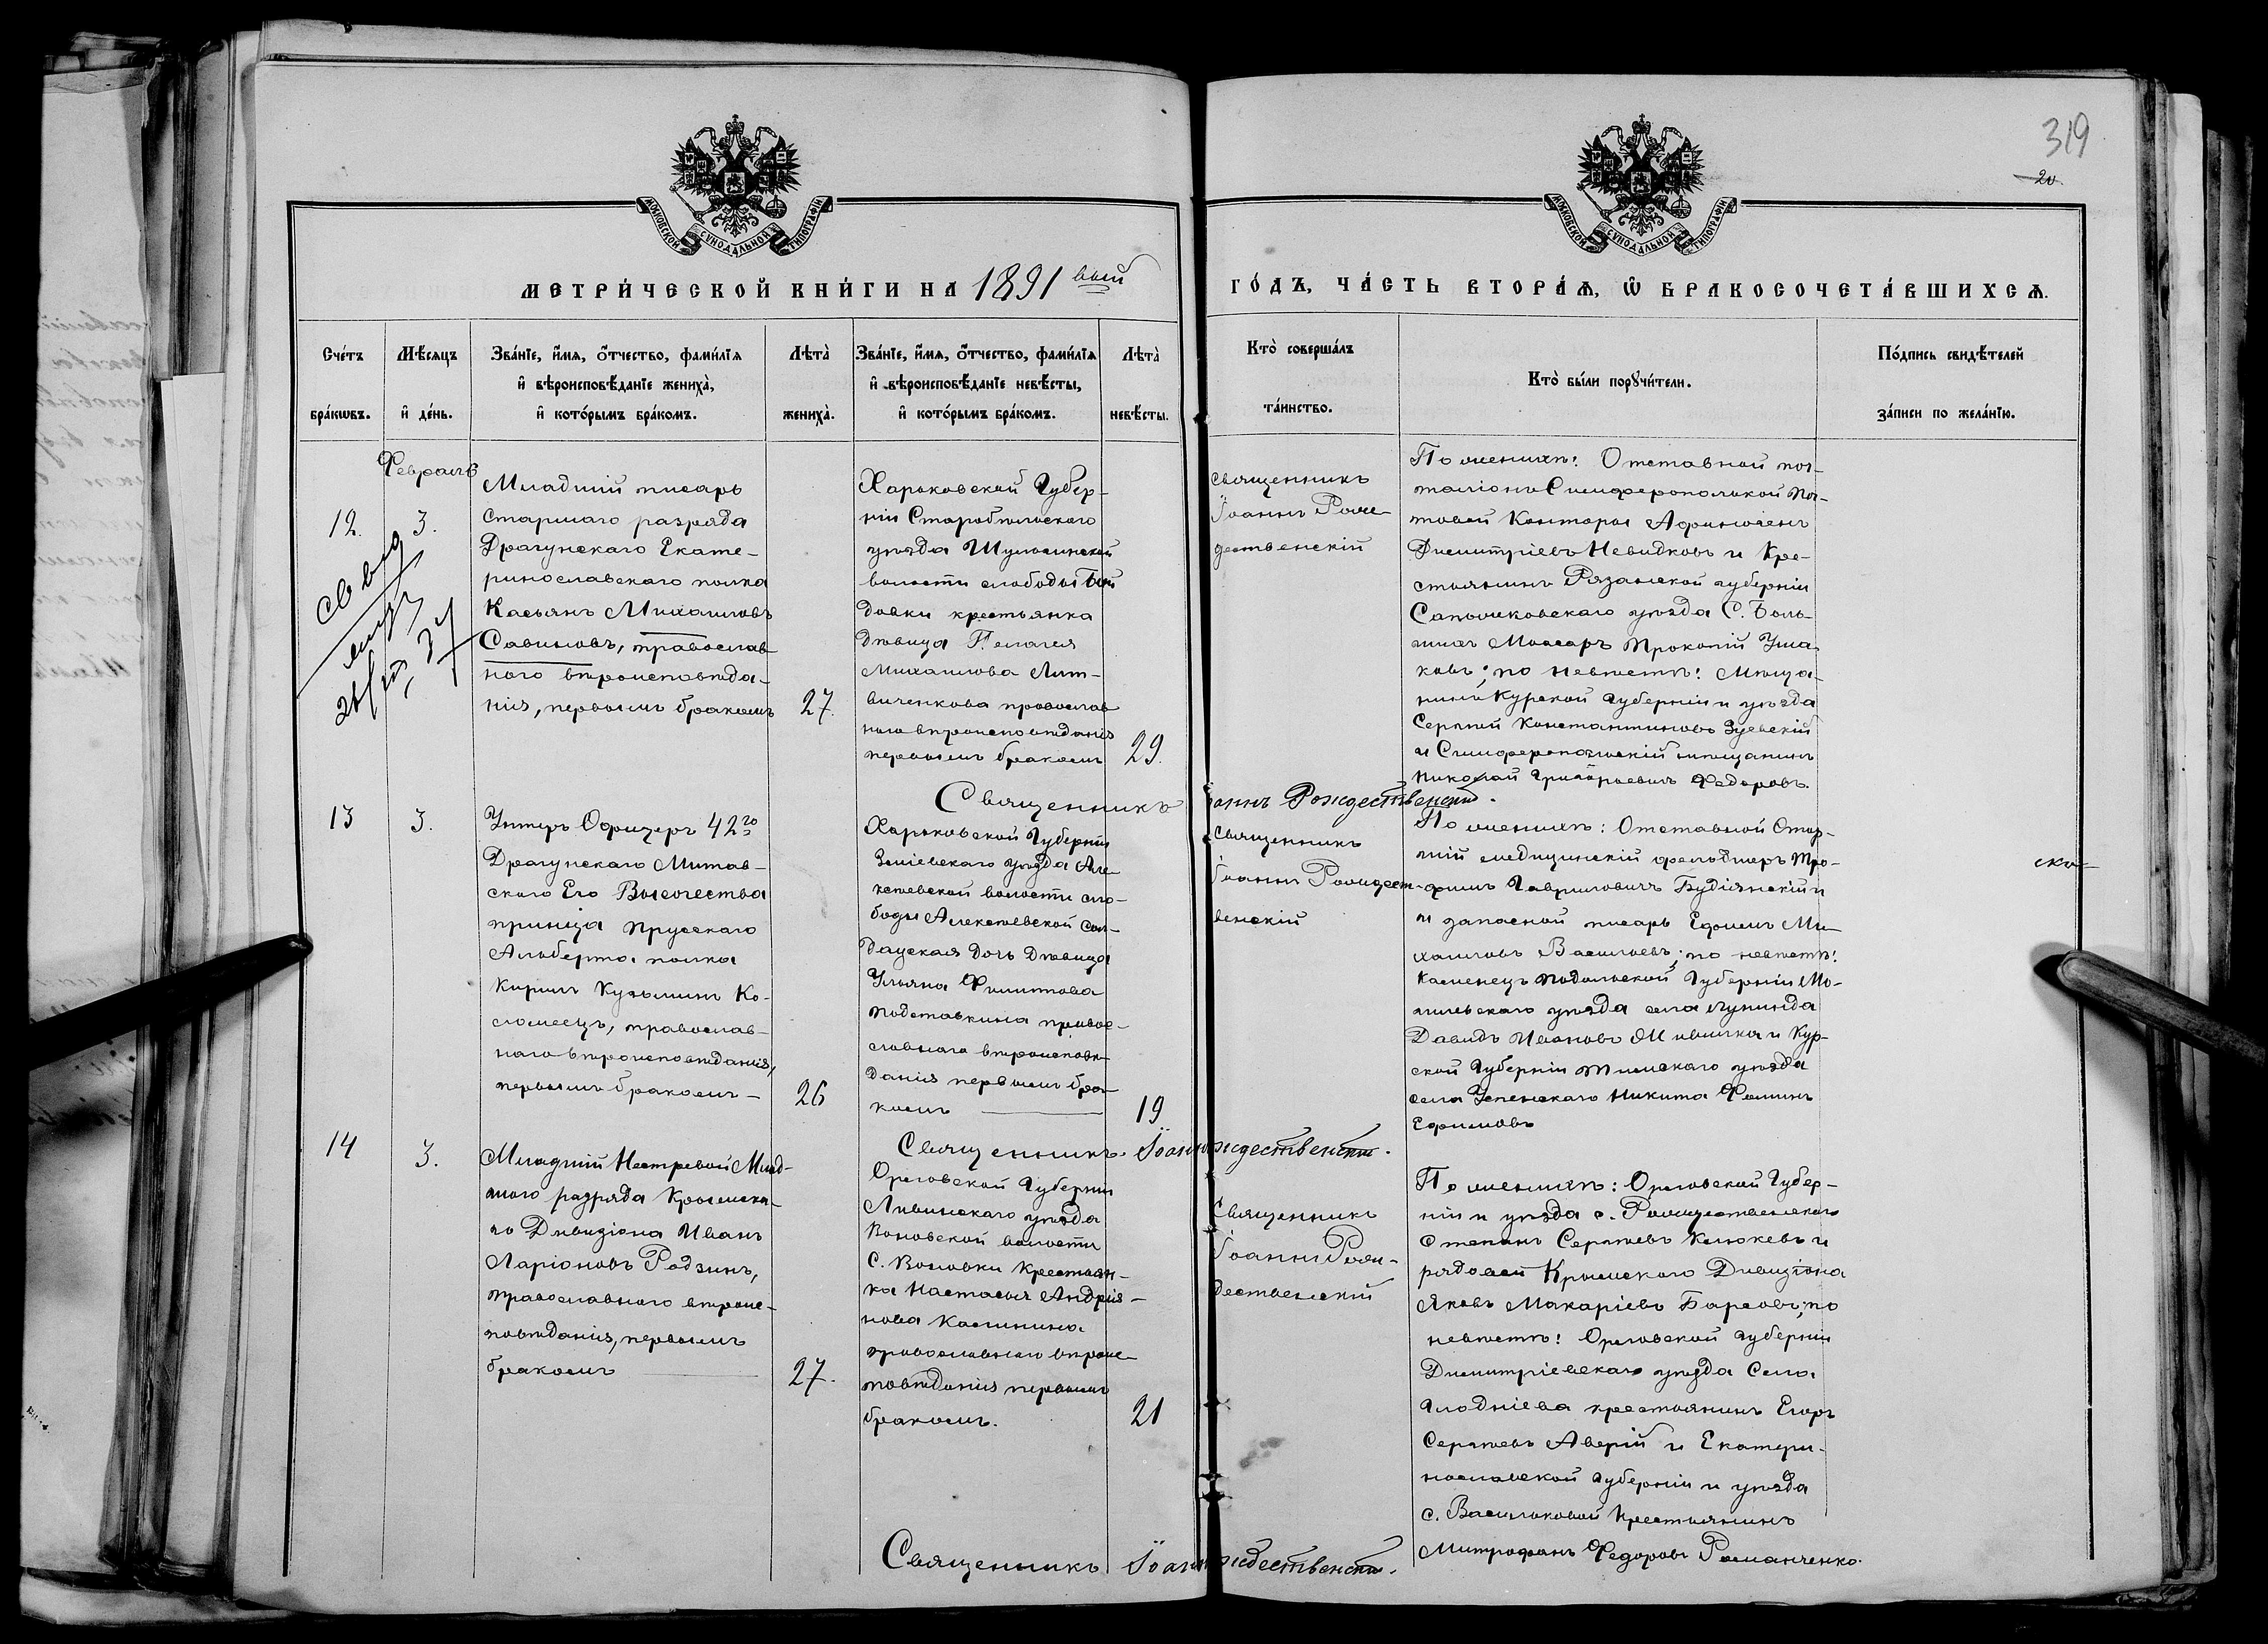 319
20
МОСКОВСКОЙ СѴНОДАЛЬНОЙ ТИПОГРАФІИ
МОСКОВСКОЙ СѴНОДАЛЬНОЙ ТИПОГРАФІИ
МЕТРИ́ЧЕСКОЙ КНИ́ГИ НА 1891 вый
ГО́ДЪ, ЧА́СТЬ ВТОРА́Ѧ, Ѡ БРАКОСОЧЕТА́ВШИХСѦ.
Сче́тъ бра́кωвъ.
Мѣ́сяцъ и҆ де́нь.
Зва́нїе, и҆́мѧ, о҆́тчество, фами́лїѧ
и҆ вѣроисповѣ́данїе жениха̀,
и҆ кото́рымъ бра́комъ.
Лѣта̀ жениха̀.
Зва́нїе, и҆́мѧ, о҆́тчество, фами́лїѧ
и҆ вѣроисповѣ́данїе невѣ́сты,
и҆ кото́рымъ бра́комъ.
Лѣта̀ невѣ́сты.
Кто̀ соверша́лъ
та́инство.
Кто̀ бы́ли порꙋчи́тели.
По́дпись свидѣ́телей
за́писи по жела́нїю.
Февраль
12.
3.
Младшій писарь
старшаго разряда
Драгунскаго Екате-
ринославскаго полка
Касьянъ Михаиловъ
Савиловъ, православ
наго вѣроисповѣда-
нія, первымъ бракомъ
27.
Харьковской Губер-
ніи Старобѣльскаго
уѣзда Шульгинской
волости слободы
довки крестьянка
дѣвица Пелагея
Михаилова Лит-
виченкова православ
наго вѣроисповѣданія
первымъ бракомъ
29.
Священникъ
Іоаннъ Рож-
дественскій
По женихѣ: Отставной поч-
таліонъ Симферопольской поч-
товой Конторы
Димитріевъ Невидковъ и Кре-
стьянинъ Рязанской губерніи
Сапожковскаго уѣзда С. Боль-
шихъ Можаръ Прокопій Уша-
ковъ; по невѣстѣ: Мѣща-
нинъ Курской Губерніи и уѣзда
Сергѣй Константиновъ Зуевскій
и Симферопольскій мѣщанинъ
Николай Григорьевичъ Федоровъ.
Священникъ Іоаннъ Рождественскій.
13
3.
Унтеръ Офицеръ 42го
Драгунскаго Митав-
скаго Его Высочества
принца Прусскаго
Альберта полка
Кирилъ Кузьминъ Ко-
ломеецъ, православ-
наго вѣроисповѣданія,
первымъ бракомъ —
26
Харьковской Губерніи
Зміевскаго уѣзда Але-
ксѣевской волости сло-
боды Алексѣевской сол-
датская дочь дѣвица
Ульяна Филиппова
Подставкина право-
славнаго вѣроисповѣ-
данія первымъ бра-
комъ —
19
Священникъ
Іоаннъ Рождест-
венскій
По женихѣ: Отставной Стар-
шій медицинскій фельдшеръ Тро-
фимъ Гавриловичъ Будіянскій
и запасной писарь Ефимъ Ми-
хаиловъ Васильевъ; по невѣстѣ:
Каменецъ Подольской Губерніи Мо-
гилевскаго уѣзда села
Давидъ Ивановъ и Кур-
ской Губерніи Тимскаго уѣзда
села Успенскаго Никита Фоминъ
Ефимовъ
Священникъ Іоаннъ Рождественскій.
14
3.
Младшій Нестроевой Млад-
шаго разряда Крымска-
го Дивизіона Иванъ
Ларіоновъ Родзинъ,
православнаго вѣроис-
повѣданія, первымъ
бракомъ —
27.
Орловской Губерніи
Ливинскаго уѣзда
волости
С. Воловки крестьян-
ка Настасья Андрія-
нова Калинина
православнаго вѣроис-
повѣданія первымъ
бракомъ.
21
Священникъ
Іоаннъ Рож-
дественскій
По женихѣ: Орловской Губер-
ніи и уѣзда с. Рождественскаго
Степанъ Сергѣевъ Клюкевъ и
рядовой Крымскаго Дивизіона
Яковъ Макаріевъ Барсовъ; по
невѣстѣ: Орловской Губерніи
Димитріевскаго уѣзда Села
Глодніева крестьянинъ Егоръ
Сергѣевъ Аверій и Екатери-
нославской Губерніи и уѣзда
с. Васильковой Крестьянинъ
Митрофанъ Федоровъ Романченко.
Священникъ Іоаннъ Рождественскій.